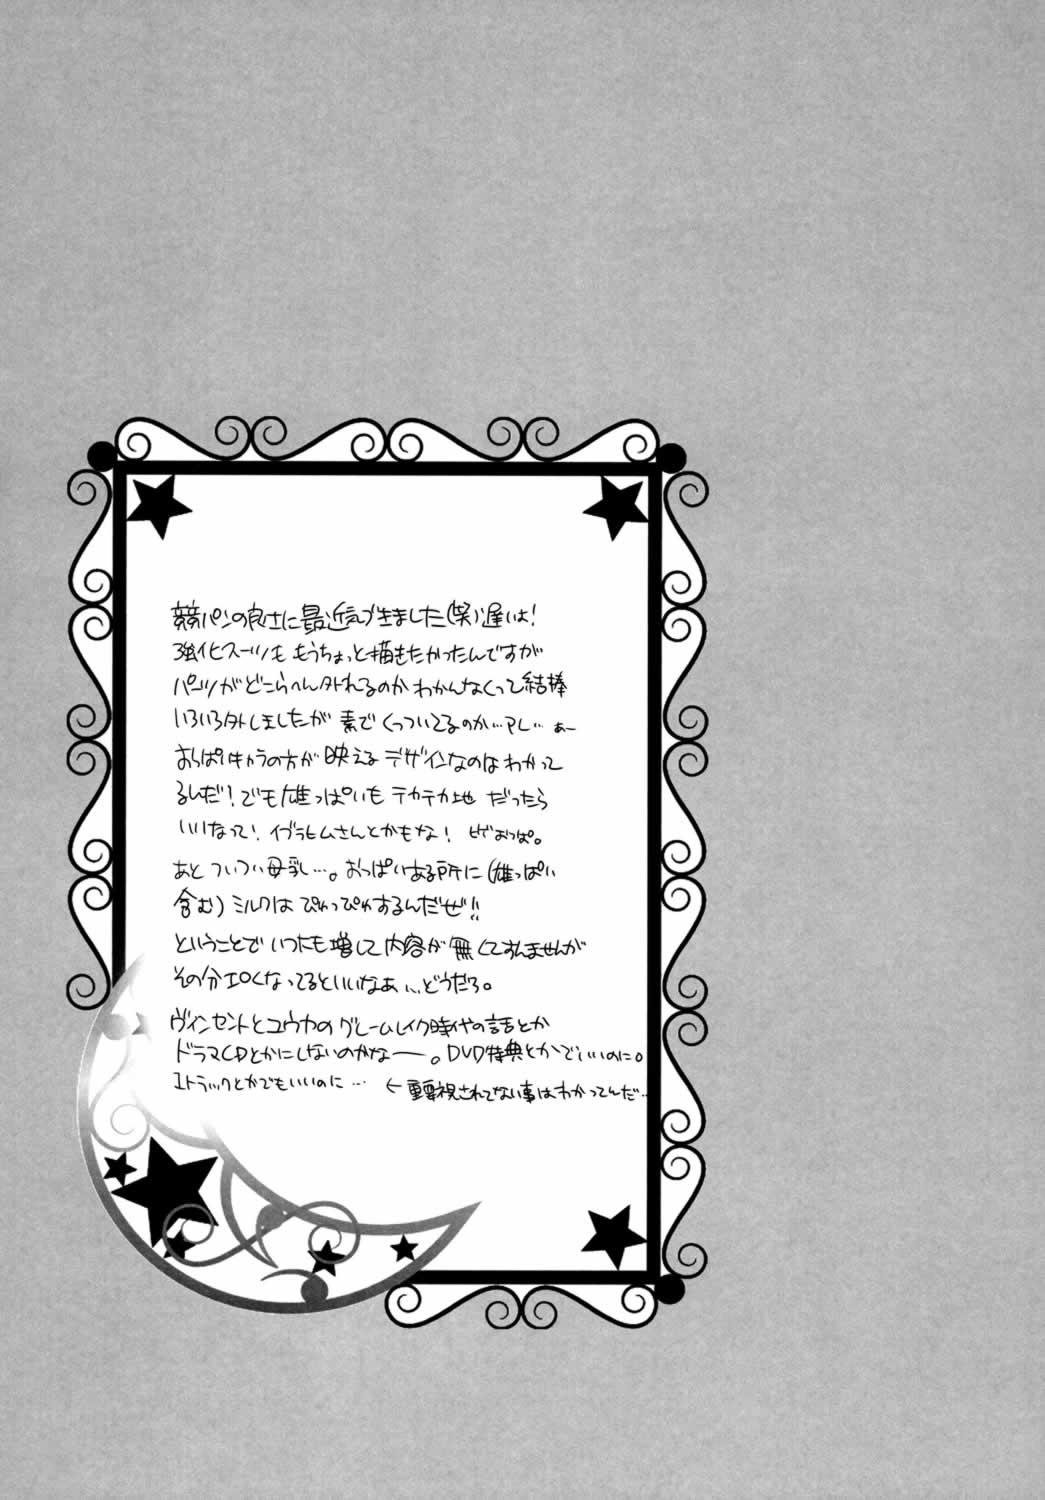 競パンの良さに最近気づきました(笑)遅いよ!
強化スーツも もうちょっと描きたかったんですが
パンツがどこらへん外れるのか わかんなくって結構
いろいろ外しましたが 素でくっついてるのか… あー
おっぱいキャラの方が 映える デザインなのは わかって
るんだ! でも雄っぱいも テカテカ地 だったら
いいなって! イブラヒムさんとかもな! ビバおっぱ。
あと ついつい 母乳…。おっぱいある所に (雄っぱい
含む) ミルクは ぴゅっぴゅするんだぜ!!
ということで いつにも増して 内容が 無くてすんませんが
その分エロくなってるといいなぁ… どうだろ。
ヴィンセントとユウカの グレームレイク時代の話とか
ドラマCDとかにしないのかなー。DVD特典とかでいいのに。
1トラックとかでもいいのに… ← 重要視されてない事は わかってんだ…